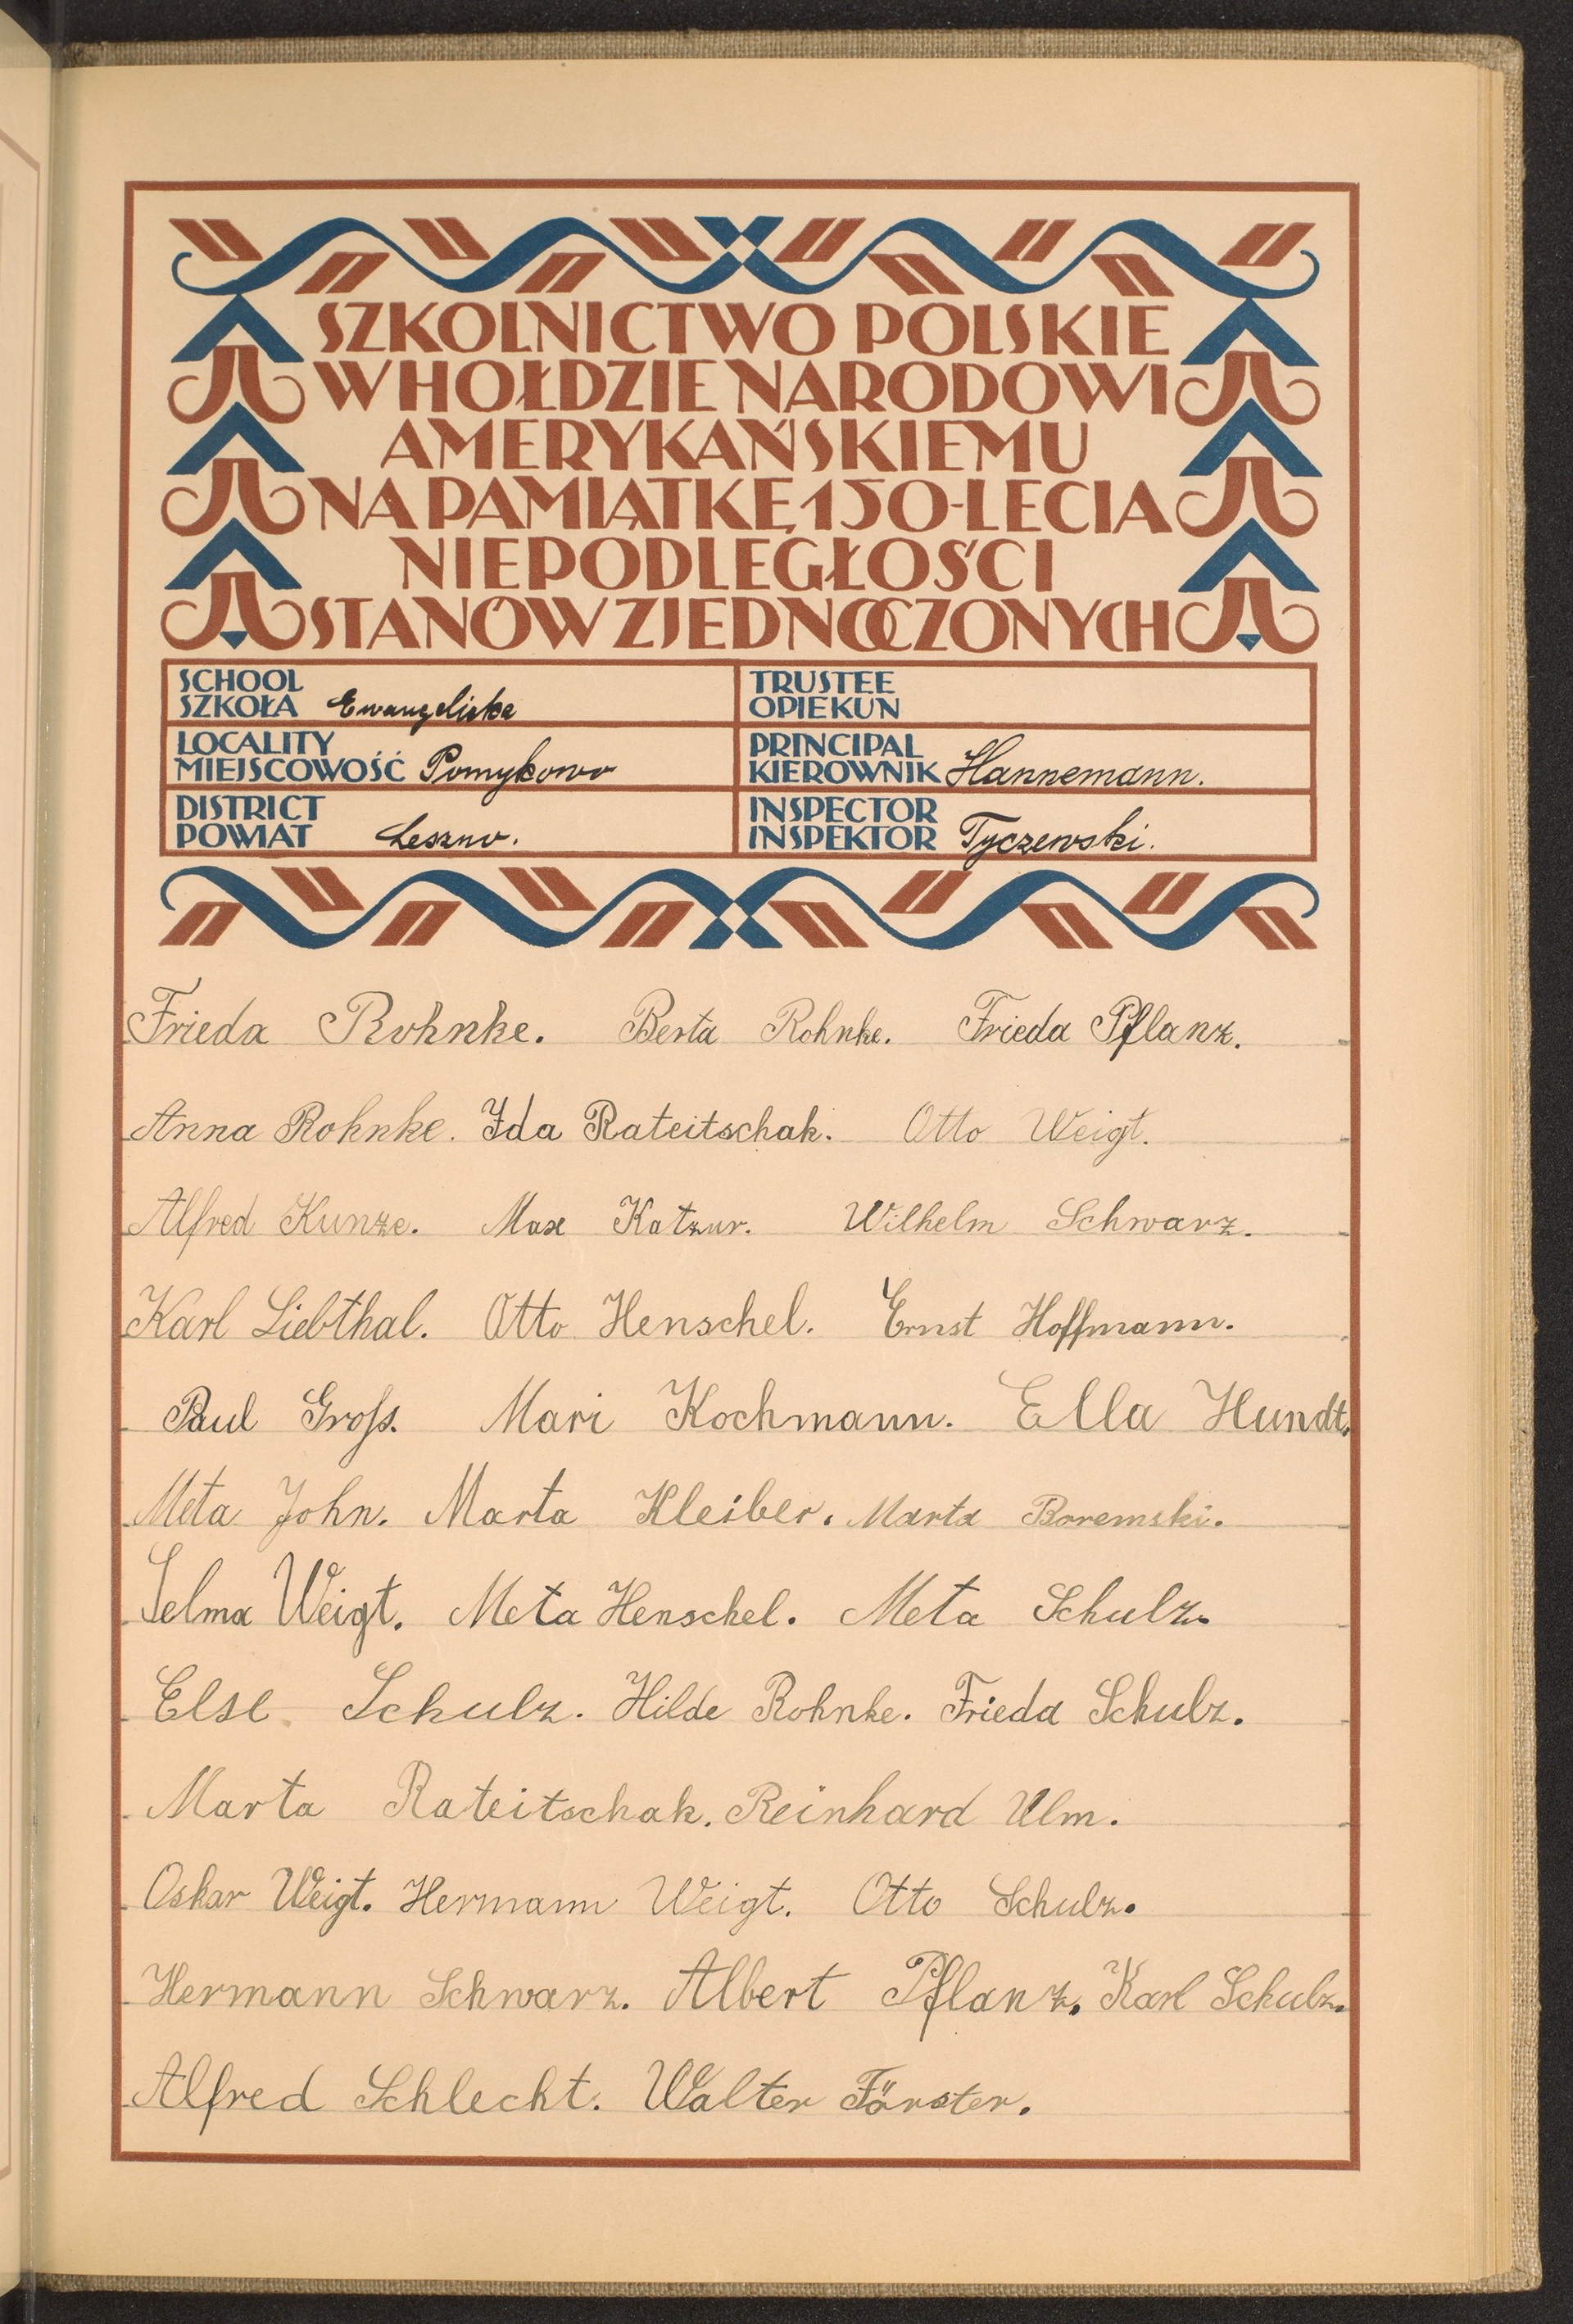 SZKOLNICTWO POLSKIE
W HOŁDZIE NARODOWI
AMERYKAŃSKIEMU
NA PAMIĄTKĘ 150-LECIA
NIEPODLEGŁOŚCI
STANÓW ZJEDNOCZONYCH
SCHOOL
SZKOŁA Ewangelicka
TRUSTEE
OPIEKUN
LOCALITY
MIEJSCOWOŚĆ Pomykowo
PRINCIPAL
KIEROWNIK Hannemann.
DISTRICT
POWIAT Leszno.
INSPECTOR
INSPEKTOR Tyczewski.
Frieda Rohnke. Berta Rohnke. Frieda Pflanz.
Anna Rohnke. Ida Rateitschak. Otto Weigt.
Alfred Kunze. Max Katzur. Wilhelm Schwarz.
Karl Liebthal. Otto Henschel. Ernst Hoffmann.
Paul Groſs. Mari Kochmann. Ella Hundt.
Meta John. Marta Kleiber. Marta Boremski.
Selma Weigt. Meta Henschel. Meta Schulz.
Else Schulz. Hilde Rohnke. Frieda Schulz.
Marta Rateitschak. Reinhard Ulm.
Oskar Weigt. Hermann Weigt. Otto Schulz.
Hermann Schwarz. Albert Pflanz. Karl Schulz.
Alfred Schlecht. Walter Förster.